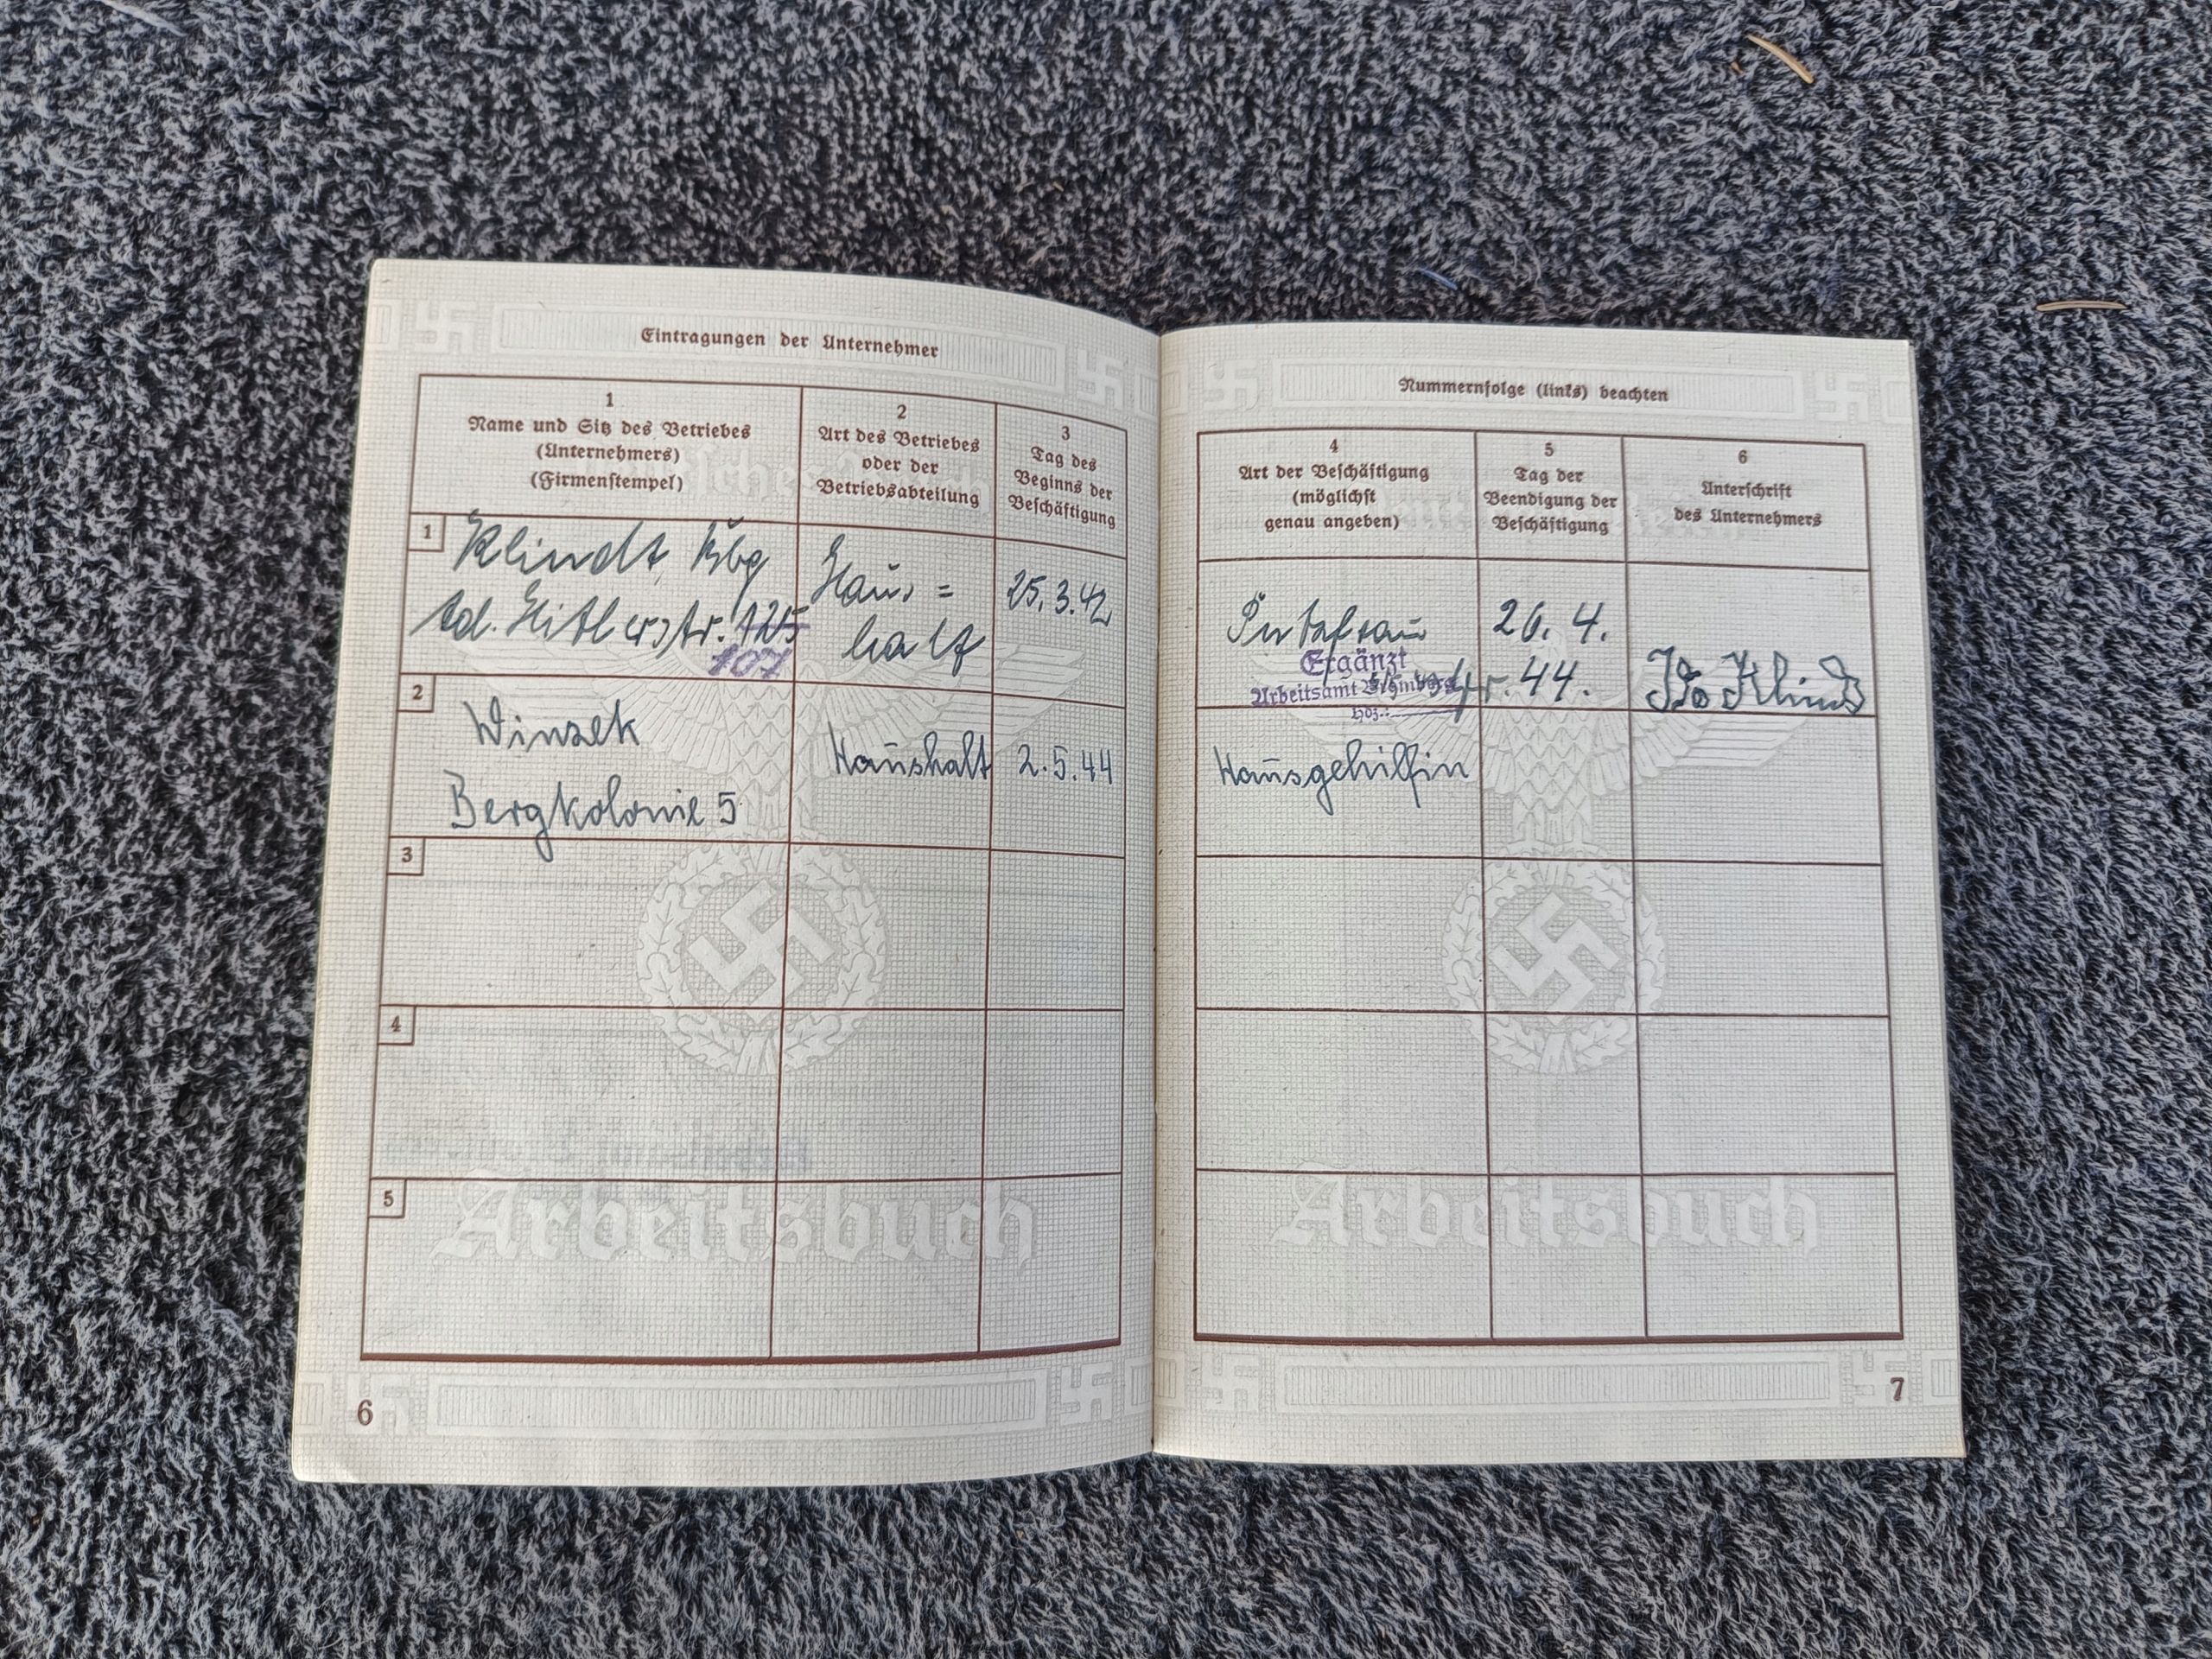 Eintragungen der Unternehmer
1
Name und Sitz des Betriebes
(Unternehmers)
(Firmenstempel)
2
Art des Betriebes
oder der
Betriebsabteilung
3
Tag des
Beginns der
Beschäftigung
1
Klindt, Kbg
Ad. Hitlerstr. 125
107
Haus=
halt
25.3.42
2
Winzek
Bergkolonie 5
Haushalt
2.5.44
3
4
5
Arbeitsbuch
6
Nummernfolge (links) beachten
4
Art der Beschäftigung
(möglichst
genau angeben)
5
Tag der
Beendigung der
Beschäftigung
6
Unterschrift
des Unternehmers
26. 4.
44.
Ergänzt
Arbeitsamt
Hausgehilfin
Arbeitsbuch
7